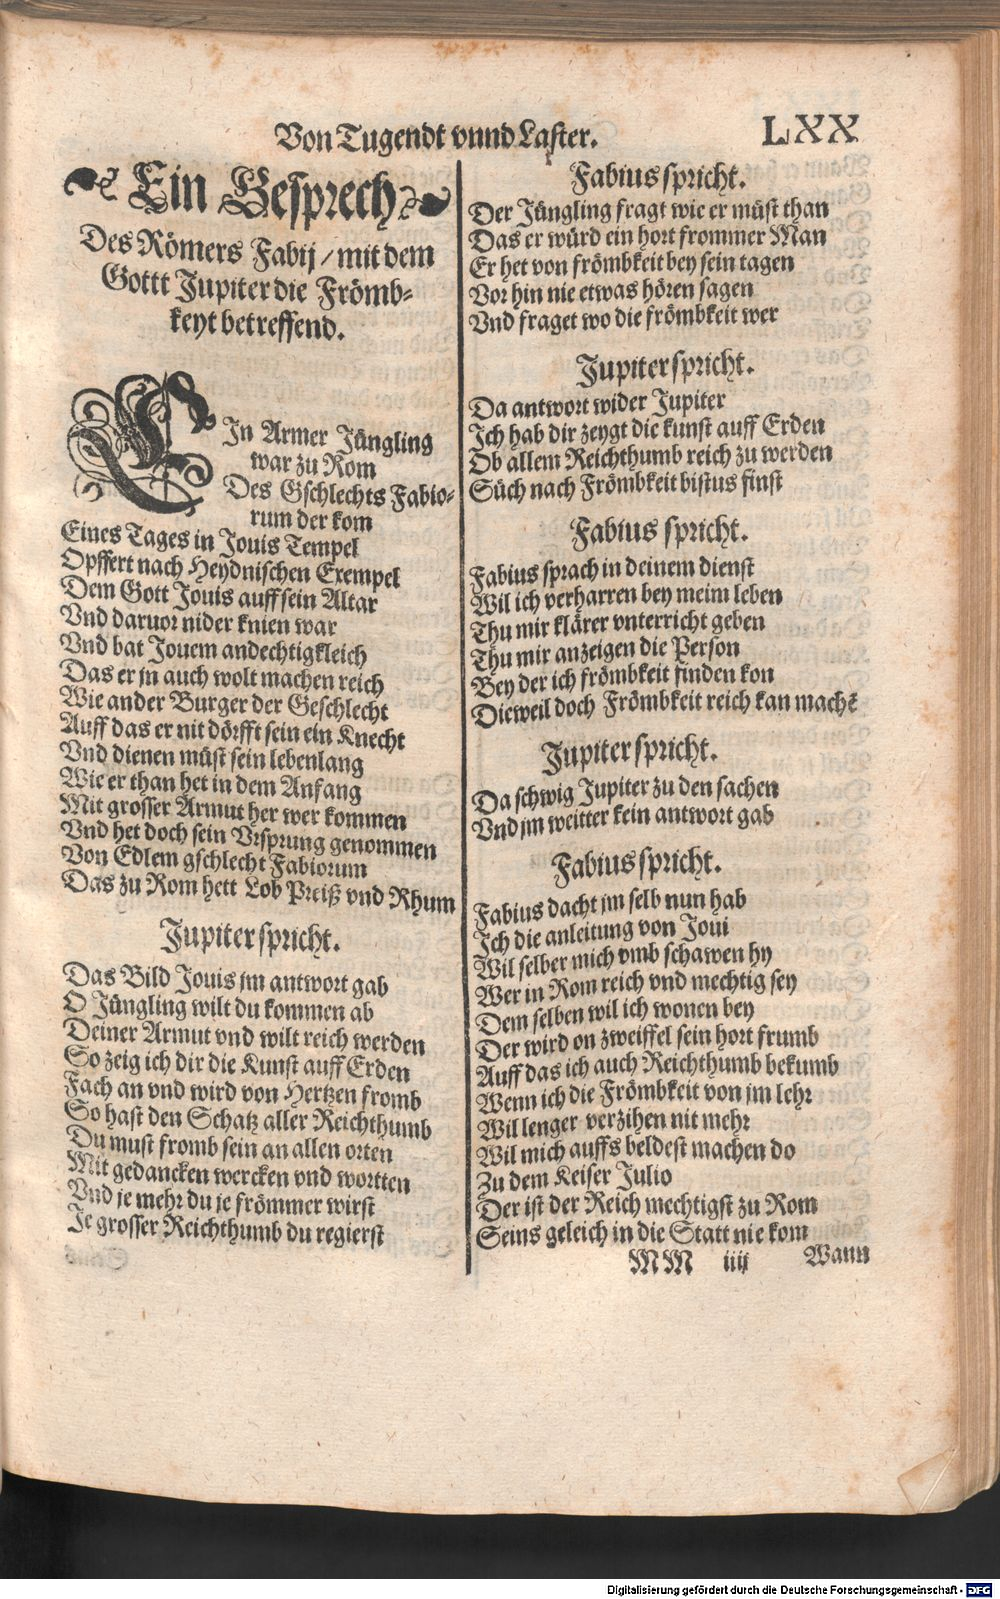 Von Tugendt vnnd Laster.
LXX
Ein Gesprech
Des Römers Fabij / mit dem
Gottt Jupiter die Frömb-
keyt betreffend.
EIn Armer Jüngling
war zu Rom
Des Gschlechts Fabio-
rum der kom
Eines Tages in Jouis Tempel
Opffert nach Heydnischen Exempel
Dem Gott Jouis auff sein Altar
Vnd daruor nider knien war
Vnd bat Jouem andechtigkleich
Das er jn auch wolt machen reich
Wie ander Burger der Geschlecht
Auff das er nit dörfft sein ein Knecht
Vnd dienen müst sein lebenlang
Wie er than het in dem Anfang
Mit grosser Armut her wer kommen
Vnd het doch sein Vrsprung genommen
Von Edlem gschlecht Fabiorum
Das zu Rom hett Lob Preiß vnd Rhum
Jupiter spricht.
Das Bild Jouis jm antwort gab
O Jüngling wilt du kommen ab
Deiner Armut vnd wilt reich werden
So zeig ich dir die Kunst auff Erden
Fach an vnd wird von Hertzen fromb
So hast den Schatz aller Reichthumb
Du must fromb sein an allen orten
Mit gedancken wercken vnd wortten
Vnd je mehr du je frömmer wirst
Je grosser Reichthumb du regierst
Fabius spricht.
Der Jüngling fragt wie er müst than
Das er würd ein hort frommer Man
Er het von frömbkeit bey sein tagen
Vor hin nie etwas hören sagen
Vnd fraget wo die frömbkeit wer
Jupiter spricht.
Da antwort wider Jupiter
Ich hab dir zeygt die kunst auff Erden
Ob allem Reichthumb reich zu werden
Süch nach Frömbkeit bistus finst
Fabius spricht.
Fabius sprach in deinem dienst
Wil ich verharren bey meim leben
Thu mir klärer vnterricht geben
Thu mir anzeigen die Person
Bey der ich frömbkeit finden kon
Dieweil doch Frömbkeit reich kan machē
Jupiter spricht.
Da schwig Jupiter zu den sachen
Vnd jm weitter kein antwort gab
Fabius spricht.
Fabius dacht jm selb nun hab
Ich die anleitung von Joui
Wil selber mich vmb schawen hy
Wer in Rom reich vnd mechtig sey
Dem selben wil ich wonen bey
Der wird on zweiffel sein hort frumb
Auff das ich auch Reichthumb bekumb
Wenn ich die Frömbkeit von jm lehr
Wil lenger verzihen nit mehr
Wil mich auffs beldest machen do
Zu dem Keiser Julio
Der ist der Reich mechtigst zu Rom
Seins geleich in die Statt nie kom
MM iiij
Wann
Digitalisierung gefördert durch die Deutsche Forschungsgemeinschaft - DFG